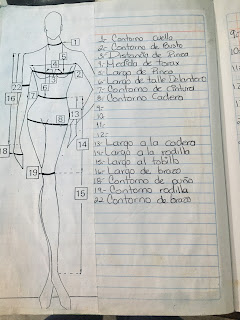 1- Contorno cuello
2- Contorno de Busto
3- Distancia de Pinza
4- Medida de torax
5- Largo de Pinza
6- Largo de talle Delantero
7- Contorno de cintura
8- Contorno Cadera
9-
10
11
12-
13- Largo a la cadera
14- Largo a la rodilla
15- Largo al tobillo
16- Largo de brazo
18- Contorno de puño
19- Contorno rodilla
22 Contorno de brazo
1
4
5
3
6
2
22
10
16
7
8
13
14
18
19
15
9-
10-